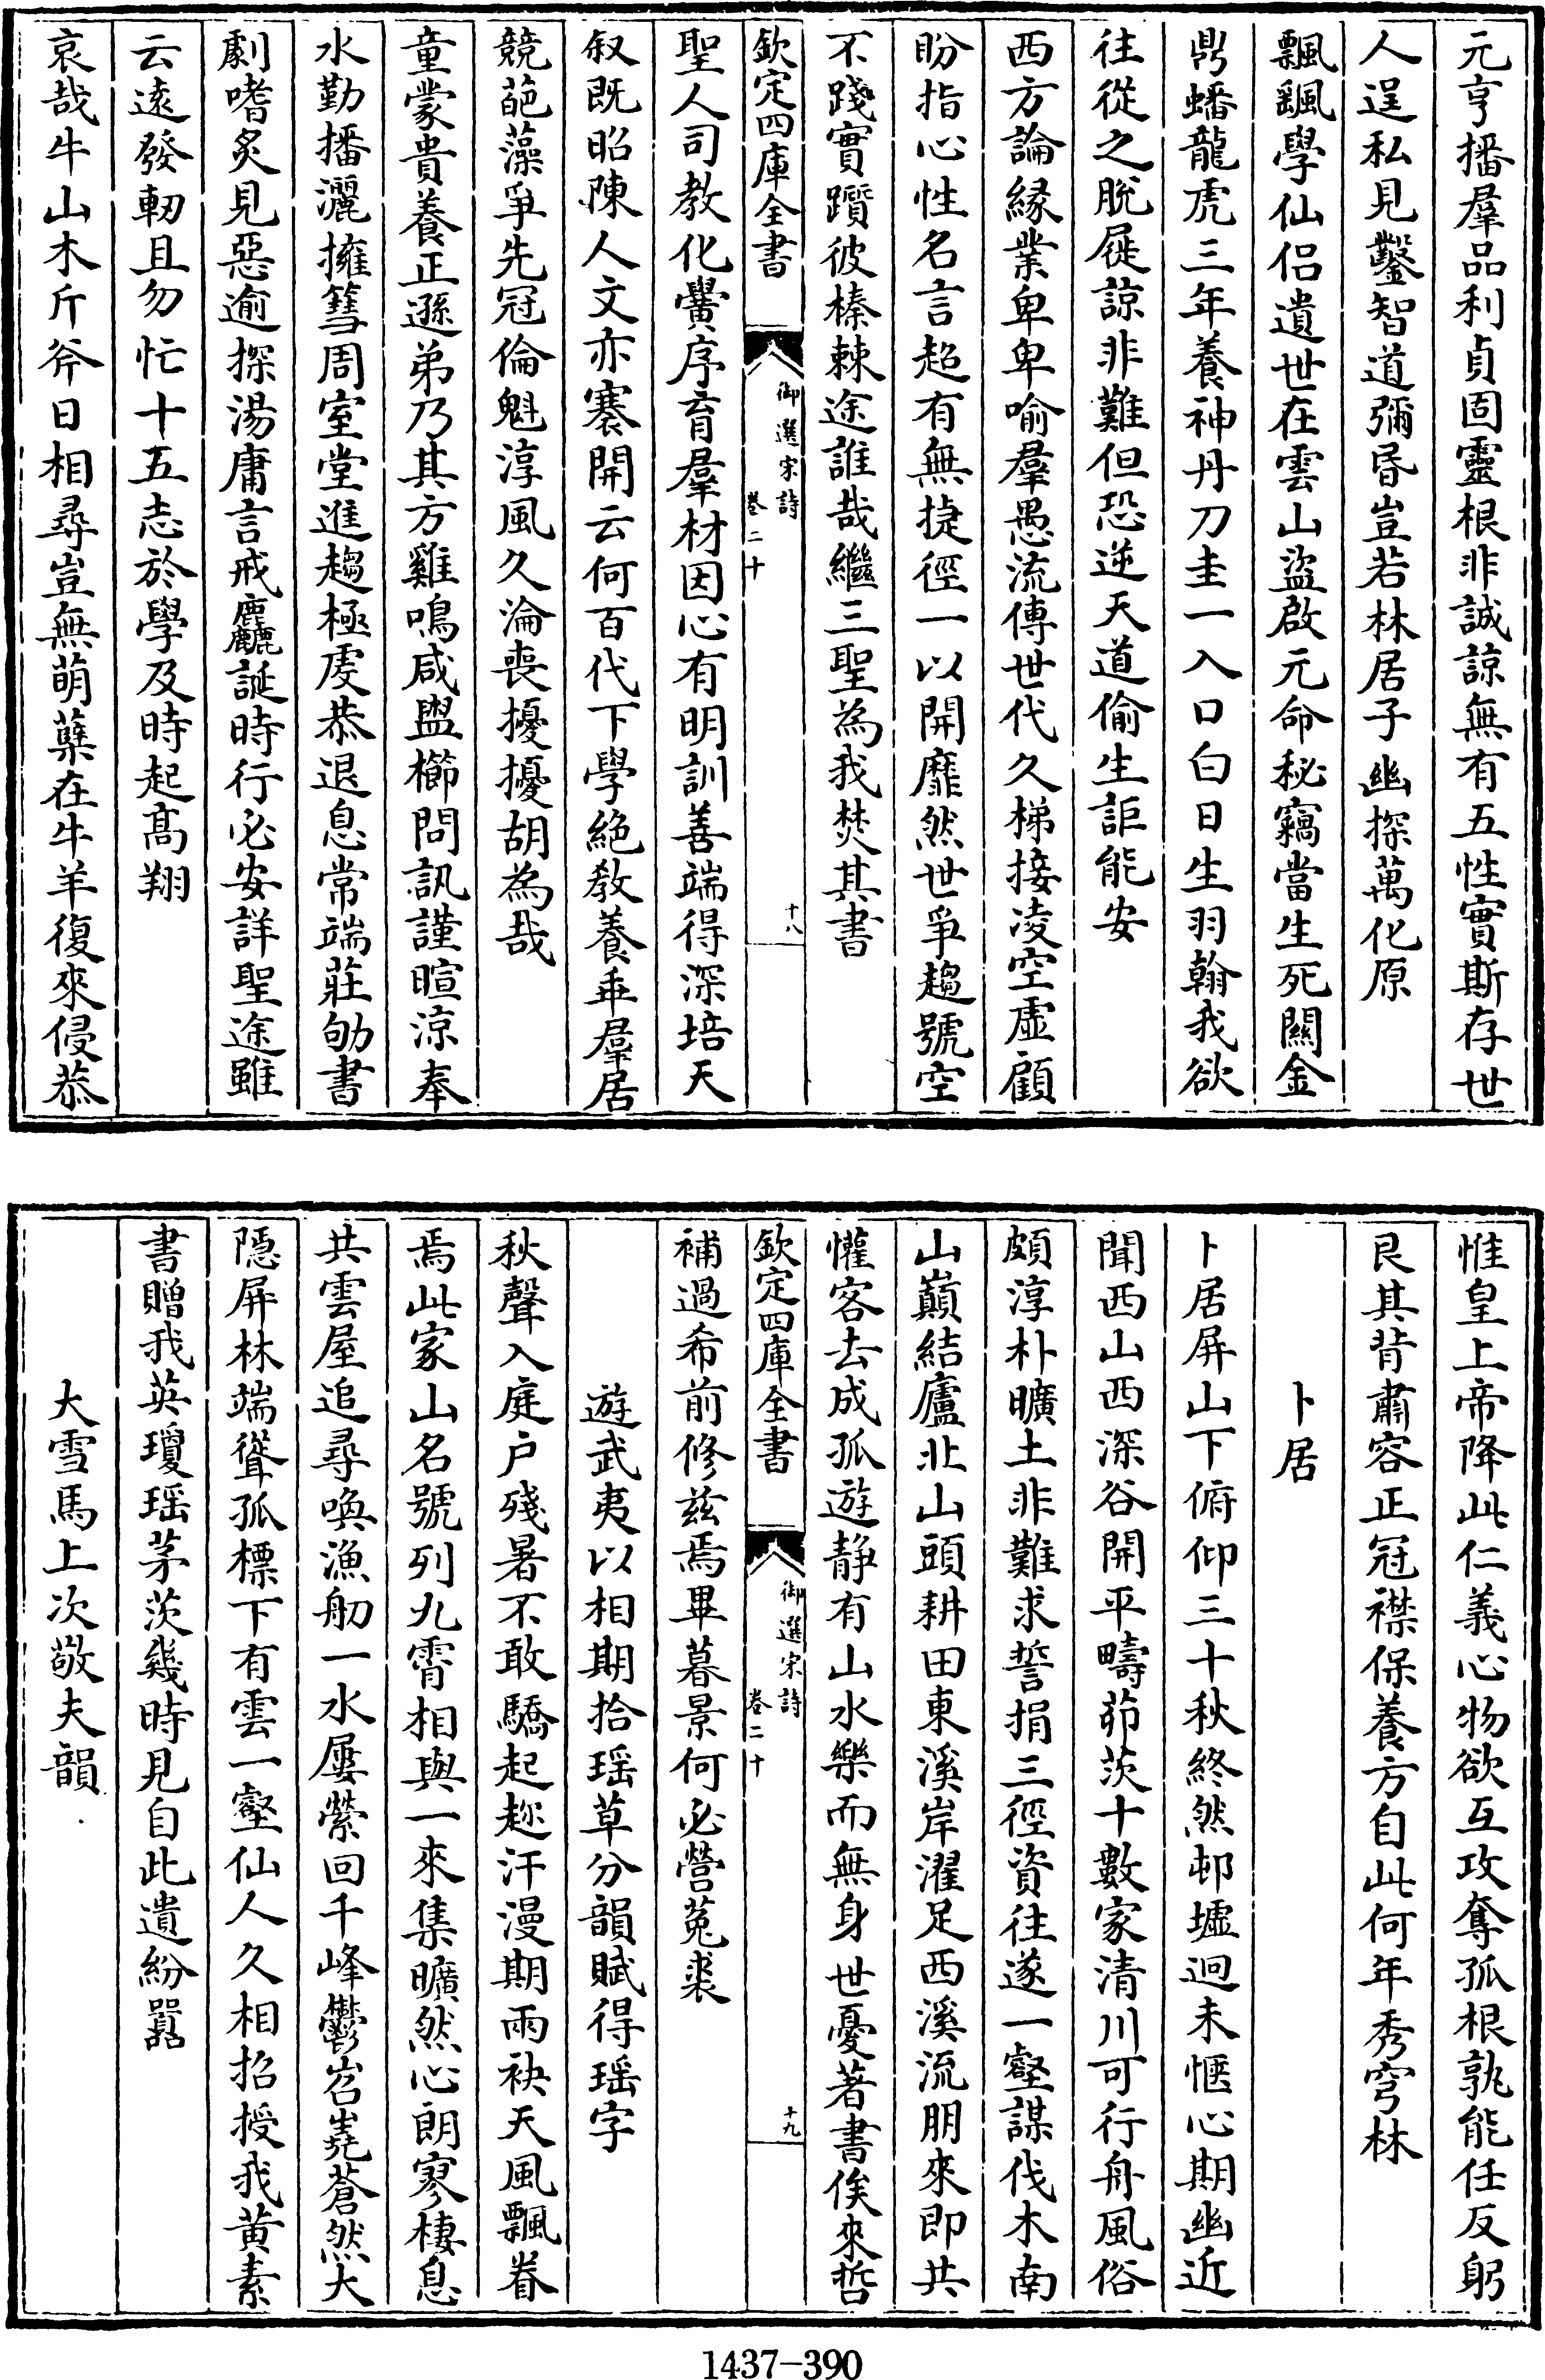 元亨播羣品利貞固靈根非誠諒無有五性實斯存世
人逞私見鑿智道彌昬豈若林居子幽探萬化原
飄飄學仙侣遺世在雲山盜啟元命秘竊當生死關金
鼎蟠龍虎三年養神丹刀圭一入口白日生羽翰我欲
往從之脫屣諒非難但恐逆天道偷生詎能安
西方論緣業卑卑喻羣愚流傳世代久梯接凌空虛顧
盼指心性名言超有無捷徑一以開靡然世爭趨號空
不踐實躓彼榛棘途誰哉繼三聖為我焚其書
欽定四庫全書
御選宋詩
卷二十
十八
聖人司教化黌序育羣材因心有明訓善端得深培天
叙既昭陳人文亦褰開云何百代下學絶敎養乖羣居
競葩藻爭先冠倫魁淳風久淪喪擾擾胡為哉
童蒙貴養正遜弟乃其方雞鳴咸盥櫛問訊謹暄涼奉
水勤播灑擁篲周室堂進趨極虔恭退息常端莊劬書
劇嗜炙見惡逾探湯庸言戒麤誕時行必安詳聖途雖
云遠發軔且勿忙十五志於學及時起髙翔
哀哉牛山木斤斧日相尋豈無萌蘖在牛羊復來侵恭
惟皇上帝降此仁義心物欲互攻奪孤根孰能任反躬
艮其背肅容正冠襟保養方自此何年秀穹林
卜居
卜居屏山下俯仰三十秋終然邨墟迥未愜心期幽近
聞西山西深谷開平疇茆茨十數家清川可行舟風俗
頗淳朴曠土非難求誓捐三徑資往遂一壑謀伐木南
山巔結廬北山頭耕田東溪岸濯足西溪流朋來即共
懽客去成孤遊静有山水樂而無身世憂著書俟來哲
欽定四庫全書
御選宋詩
卷二十
十九
補過希前修兹焉畢暮景何必營菟裘
遊武夷以相期拾瑶草分韻賦得瑶字
秋聲入庭户殘暑不敢驕起趂汗漫期雨袂天風飄眷
焉此家山名號列九霄相與一來集曠然心朗寥棲息
共雲屋追尋喚漁舠一水屢縈回千峰鬱岧嶤蒼然大
隱屏林端聳孤標下有雲一壑仙人久相招授我黄素
書贈我英瓊瑶茅茨幾時見自此遺紛囂
大雪馬上次敬夫韻
1437-390